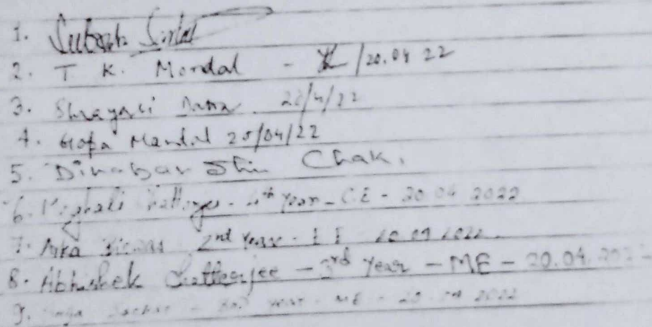 1. Subrata
2. T K. Mondal - /20.04 22
3. Shrayasi 20/4/22
4. Gopa Mandal 20/04/22
5. Dinabandhu Chak.
6. 4th year - CE - 20.04.2022
7. Arka Biswas 2nd Year - EE 20.04.2022.
8. Abhishek Chatterjee - 3rd Year - ME - 20.04.202
9. 3rd year - ME - 20.04.2022